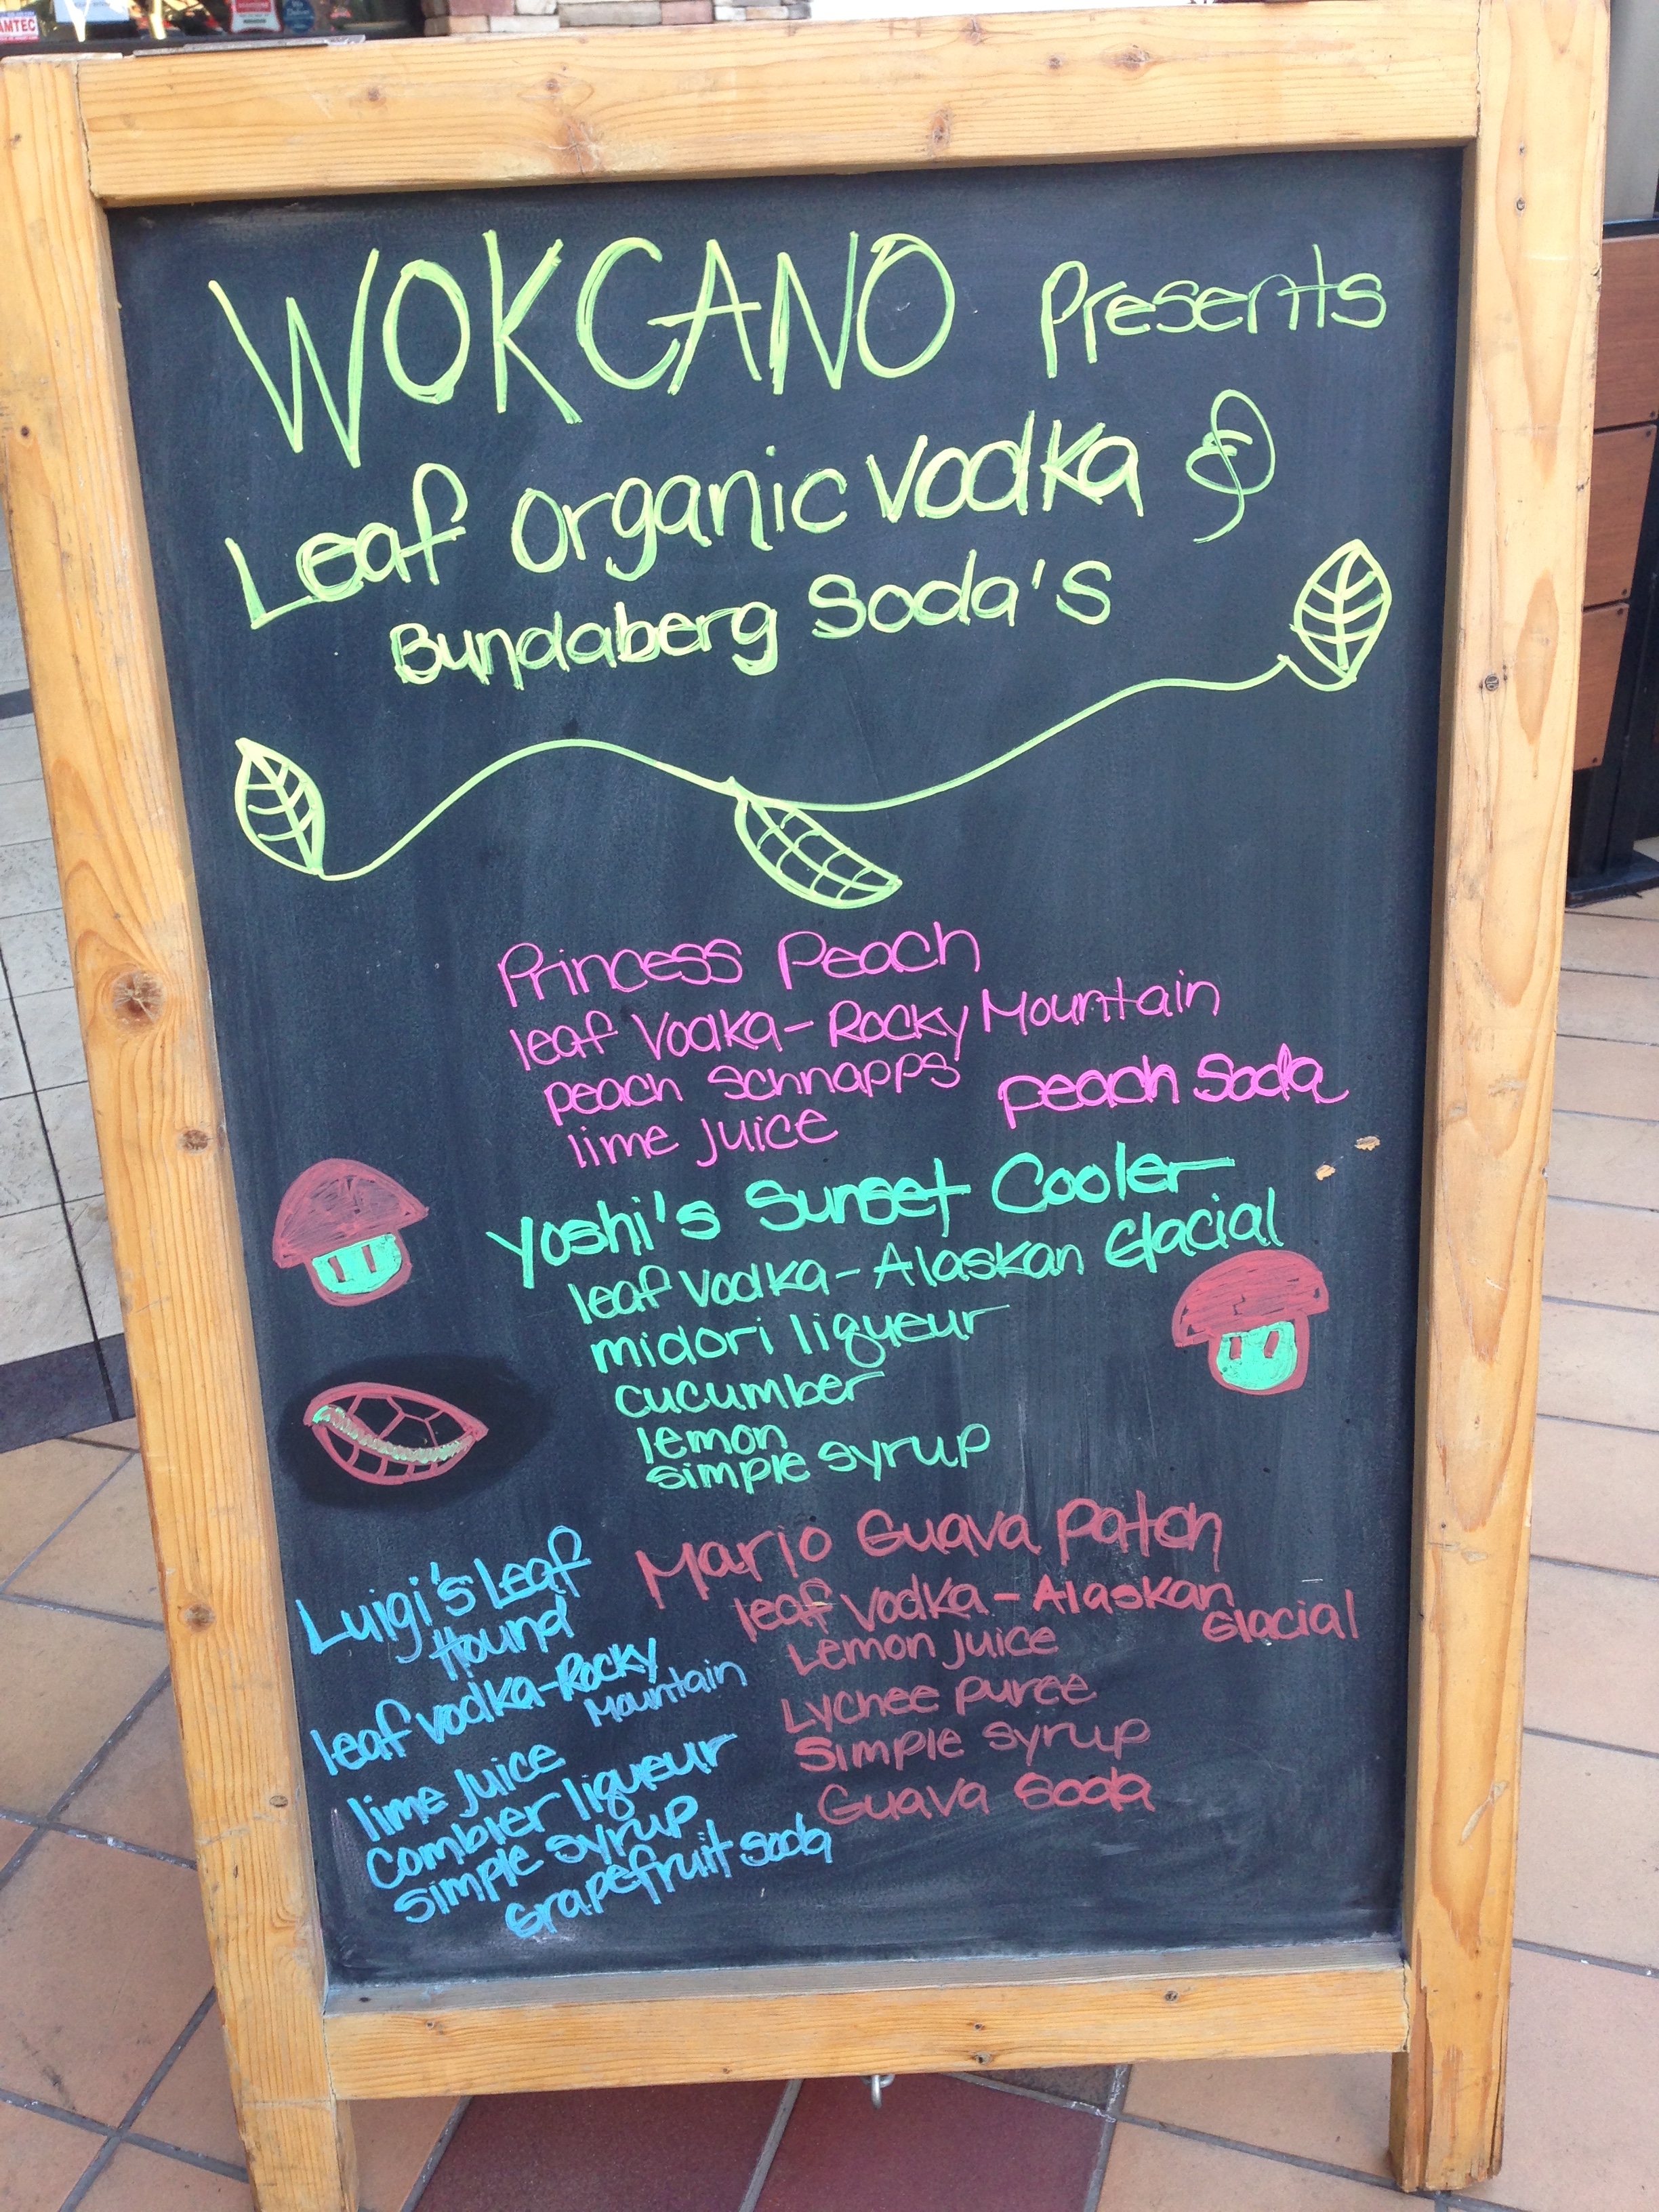 AMTEC
WOKCANO Presents
Leaf Organic Vodka &
Bundaberg Soda's
Princess Peach
leaf Vodka-Rocky Mountain
peach schnapps peach Soda
lime juice
Yoshi's Sunset Cooler
leaf Vodka-Alaskan Glacial
midori liqueur
cucumber
lemon
simple syrup
Luigi's Leaf
Hound
leaf vodka-Rocky
Mountain
lime juice
combier liqueur
simple syrup
Grapefruit soda
Mario Guava Patch
leaf Vodka-Alaskan
Glacial
Lemon juice
Lychee puree
Simple syrup
Guava Soda